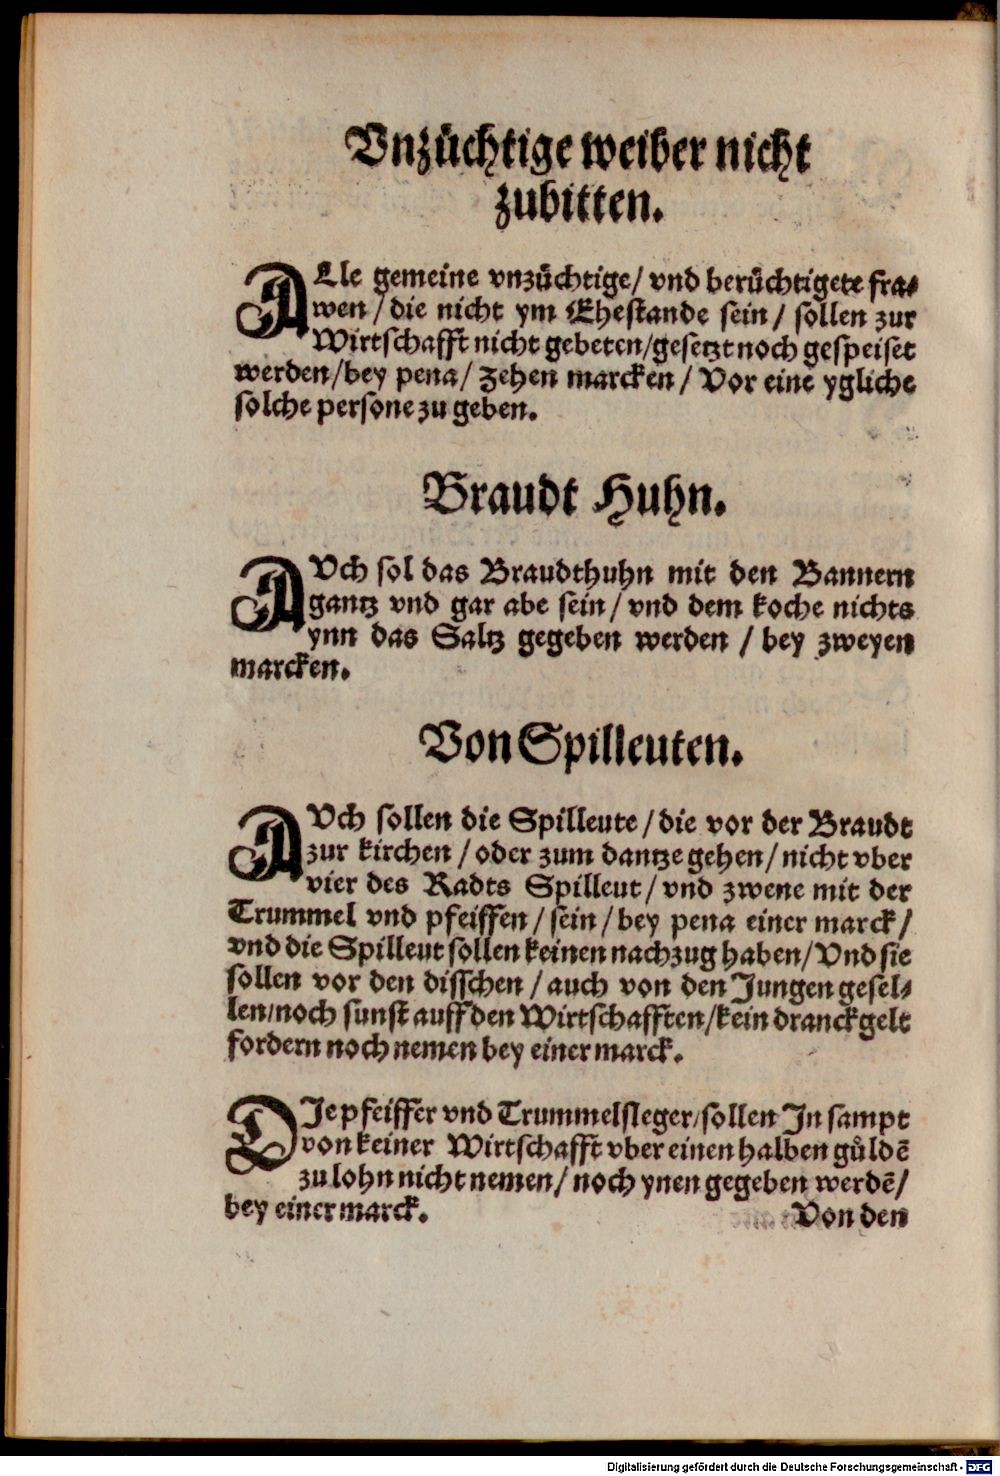 Vnzüchtige weiber nicht
zubitten.
ALle gemeine vnzüchtige/ vnd berüchtigete fra⸗
wen / die nicht ym Ehestande sein / sollen zur
Wirtschafft nicht gebeten/gesetzt noch gespeiset
werden/bey pena/ zehen marcken / Vor eine ygliche
solche persone zu geben.
Braudt Huhn.
AVch sol das Braudthuhn mit den Bannern
gantz vnd gar abe sein/ vnd dem koche nichts
ynn das Saltz gegeben werden / bey zweyen
marcken.
Von Spilleuten.
AVch sollen die Spilleute / die vor der Braudt
zur kirchen / oder zum dantze gehen/ nicht vber
vier des Radts Spilleut/ vnd zwene mit der
Trummel vnd pfeiffen/ sein/ bey pena einer marck/
vnd die Spilleut sollen keinen nachzug haben/ Vnd sie
sollen vor den disschen / auch von den Jungen gesel⸗
len/noch sunst auff den Wirtschafften/kein dranckgelt
fordern noch nemen bey einer marck.
DJe pfeiffer vnd Trummelsleger/sollen Jn sampt
von keiner Wirtschafft vber einen halben gůldē
zu lohn nicht nemen/ noch ynen gegeben werdē/
bey einer marck. Von den
Digitalisierung gefördert durch die Deutsche Forschungsgemeinschaft - DFG